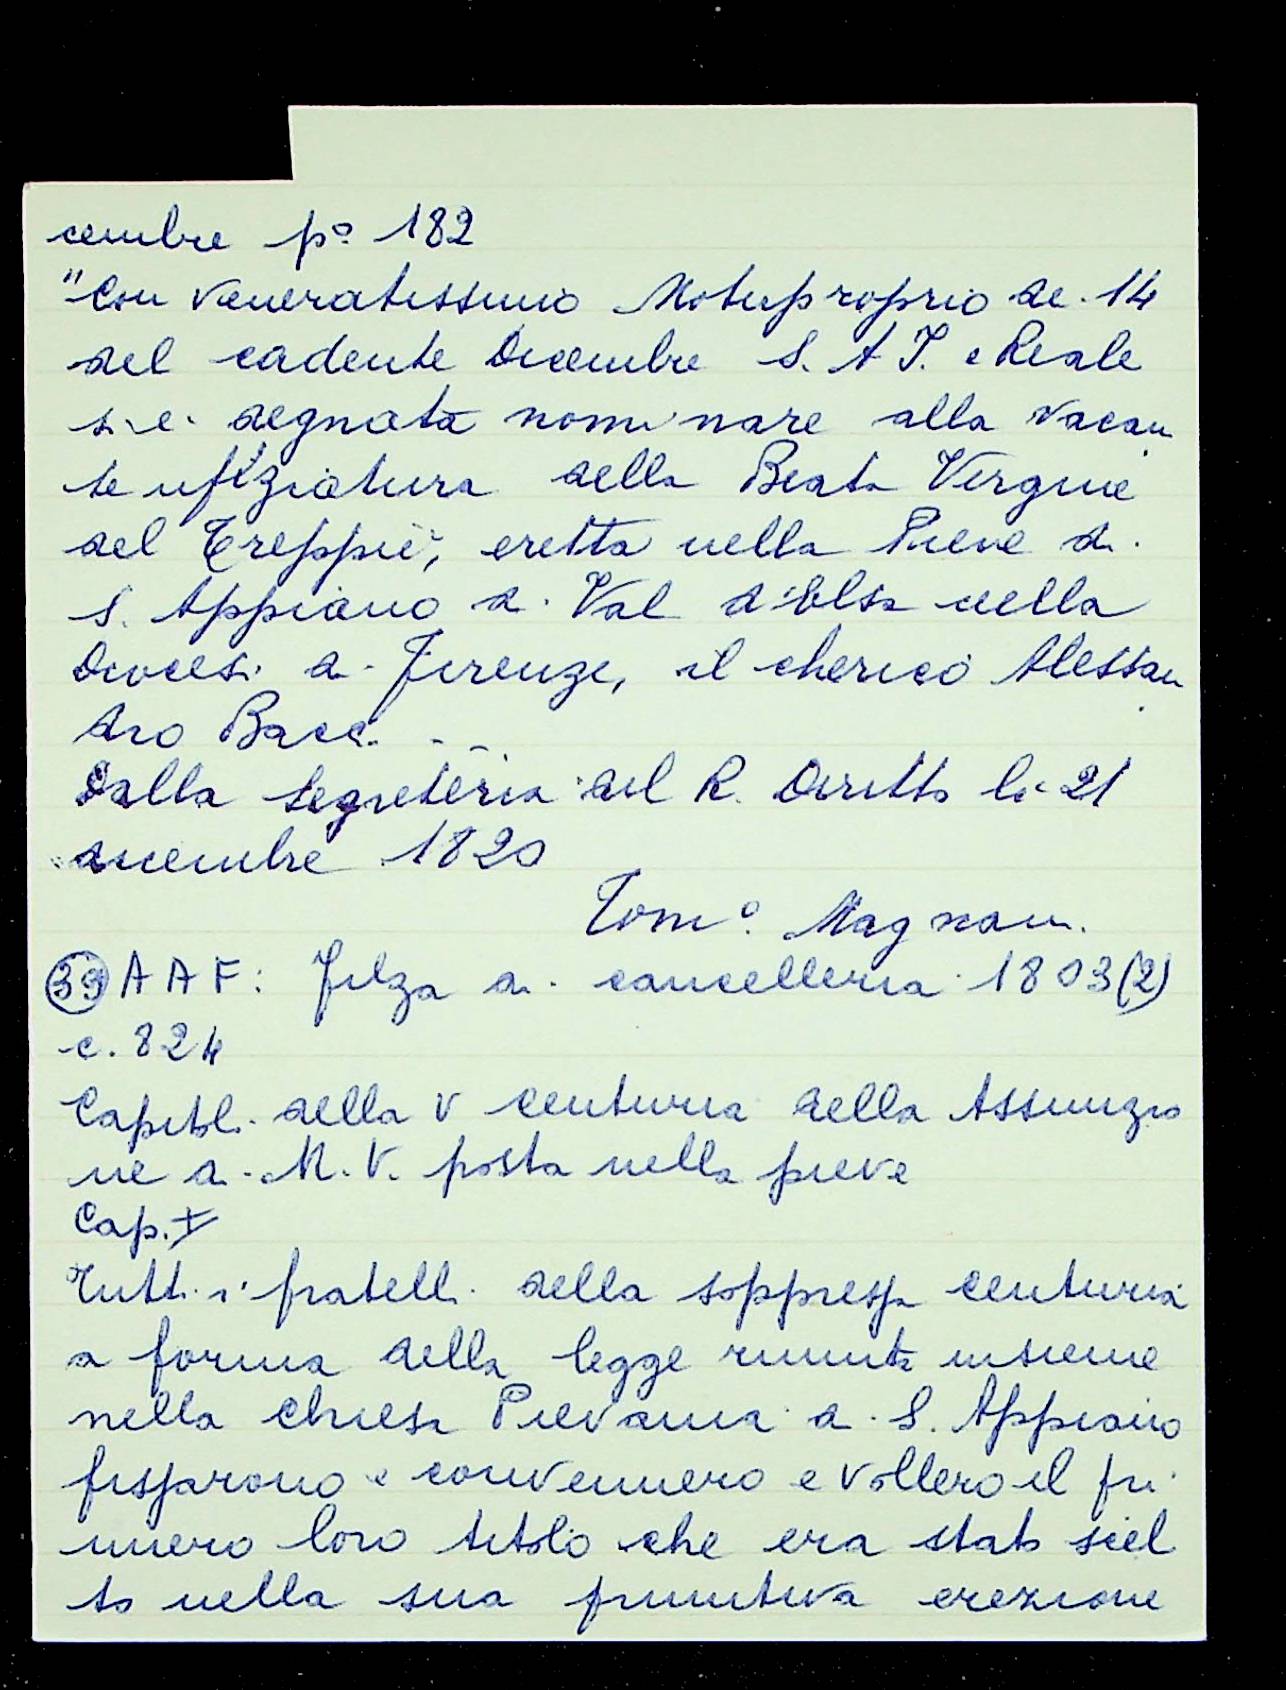 cembre pº 182
"Con veneratissimo Motuproprio de 14
del cadente Dicembre S. A I. e Reale
si è degnata nominare alla vacan
te ufiziatura della Beata Vergine
del Greppiè, eretta nella Pieve di
S. Appiano di Val d'Elsa nella
Diocesi di Firenze, il cherico Alessan
dro Bacci ...
Dalla Segreteria del R. Diritto li 21
dicembre 1820
Tomº. Magnani
39 A A F: Filza di cancelleria 1803 (2)
c. 824
Capitoli della V centuria della Assunzio
ne di M. V. posta nella pieve
Cap. I
Tutti i fratelli della soppressa centuria
a forma della legge riunita insieme
nella Chiesa Pievania di S. Appiano
fissarono e convennero e vollero il pri
miero loro titolo che era stato scel
to nella sua primitiva erezione